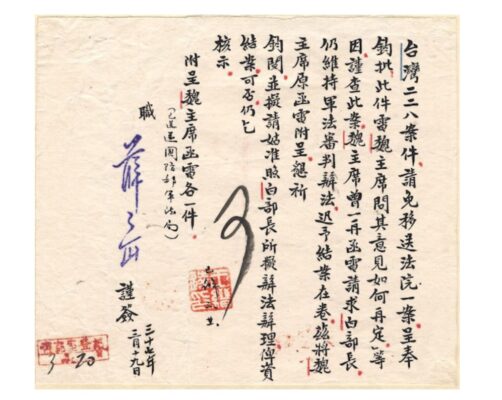 台灣二二八案件請免移送法院一案呈奉
鈞批此件電魏主席問其意見如何再定等
因謹查此案魏主席曾一再函電請求白部長
仍維持軍法審判辦法迅予結案在卷茲將魏
主席原函電附呈懇祈
鈞閱並擬請姑准照白部長所擬辦法辦理俾資
結案可否仍乞
核示
附呈魏主席函電各一件
(已送還國防部軍法局)
職
薛岳
謹簽
三十七年
二月十九日
可